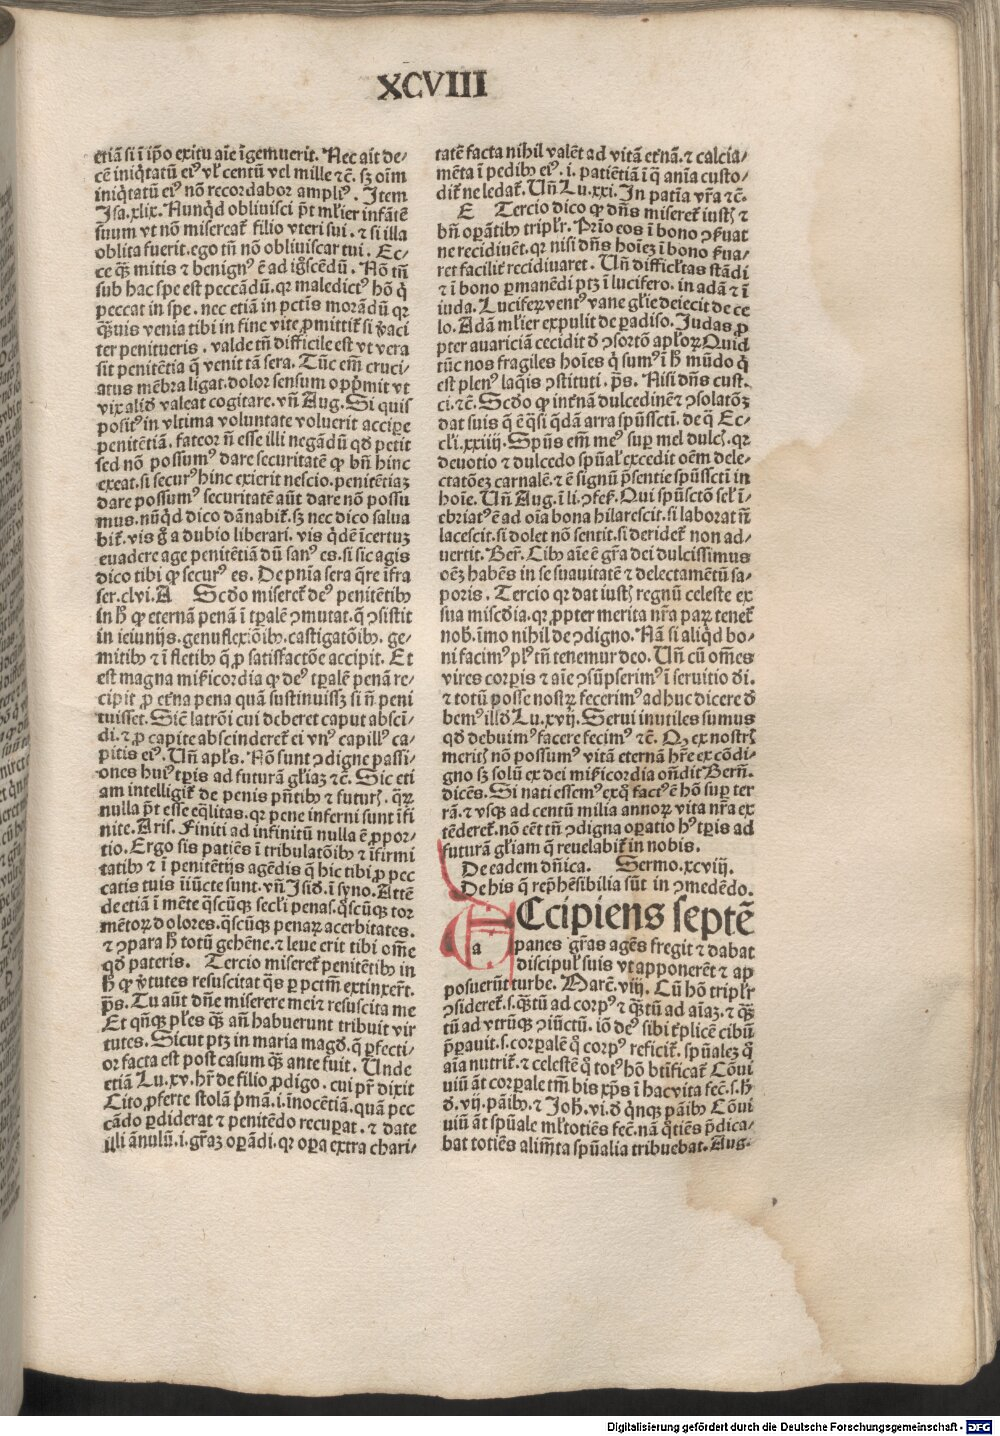 XCVIII
etiā si ī ip̄o exitu aīe īgemuerit. Nec ait de⸗
cē iniq̇tatū ei⁹ vl̓ centū vel mille ⁊c̄. sꝫ oīm
iniq̇tatū ei⁹ nō recordabor ampli⁹. Item
Isa.xlix. Nunq̇d obliuisci p̄t ml̓ier infātē
suum vt non misereat̓ filio vteri sui. ⁊ si illa
oblita fuerit. ego tn̄ nō obliuiscar tui. Ec⸗
ce qͣꝫ mitis ⁊ benign⁹ ē ad ig̊scēdū. Nō tn̄
sub hac spe est peccādū. qꝛ maledict⁹ hō q̇
peccat in spe. nec etiā in pctīs morādū qꝛ
qͣꝫuis venia tibi in fine vite ꝓmittit̓ si v̓aci
ter penitueris. valde tn̄ difficile est vt vera
sit penitētia q̄ venit tā sera. Tūc em̄ cruci⸗
atus mēbra ligat. dolor sensum opp̄mit vt
vix aliq̇d valeat cogitare. vn̄ Aug. Si quis
posit⁹ in vltima voluntate voluerit accipe
penitētiā. fateor n̄ esse illi negādū qd̓ petit
sed nō possum⁹ dare securitatē ꝙ bn̄ hinc
exeat. si secur⁹ hinc exierit nescio. penitētiaꝫ
dare possum⁹ securitatē aūt dare nō possu
mus. nūq̇d dico dānabit̓. sꝫ nec dico salua
bit̓. vis g̊ a dubio liberari. vis q̇dē īcertuꝫ
euadere age penitētiā dū san⁹ es. si sic agis
dico tibi ꝙ secur⁹ es. De pn̄ia sera q̄re īfra
ser.clvi.A Scd̓o miseret̓ de⁹ penitētibꝫ
in h̓ ꝙ eternā penā ī tꝑalē ↄmutat. q̄ ↄsistit
in ieiunijs. genuflexiōibꝫ. castigatōibꝫ. ge⸗
mitibꝫ ⁊ ī fletibꝫ q̄ ꝓ satisfactōe accipit. Et
est magna mīẜicordia ꝙ de⁹ tꝑalē penā re⸗
cipit ꝓ et̓na pena quā sustinuissꝫ si n̄ peni
tuisset. Sic̄ latrōi cui deberet caput absci⸗
di. ⁊ ꝓ capite abscinderet̓ ei vn⁹ capill⁹ ca⸗
pitis ei⁹. Vn̄ apl̓s. Nō sunt ↄdigne passi⸗
ones hui⁹ tꝑis ad futurā gl̓iaꝫ ⁊c̄. Sic eti
am intelligit̓ de penis pn̄tibꝫ ⁊ futurꝭ. qꝝ
nulla p̄t esse eq̄litas. qꝛ pene inferni sunt īfi
nite. Aris. Finiti ad infinitū nulla ē ꝓpor⸗
tio. Ergo sis patiēs ī tribulatōibꝫ ⁊ īfirmi
tatibꝫ ⁊ ī penitētijs agēdis q̄ hic tibi ꝓ pec
catis tuis iniūcte sunt. vn̄ Isid̓. ī syno. Attē
de etiā ī mēte qͣscūqꝫ secl̓i penas. qͣscūqꝫ tor
mētoꝝ dolores. qͣscūqꝫ penaꝝ acerbitates.
⁊ ↄpara h̓ totū gehēne. ⁊ leue erit tibi om̄e
qd̓ pateris. Tercio miseret̓ penitētibꝫ in
h̓ ꝙ v̓tutes resuscitat q̄s per pctm̄ extinxer̄t.
p̄s. Tu aūt dn̄e miserere mei ⁊ resuscita me
Et qn̄qꝫ pl̓es qͣꝫ an̄ habuerunt tribuit vir
tutes. Sicut ptꝫ in maria magd̓. q̄ ꝑfecti⸗
or facta est post casum qͣꝫ ante fuit. Unde
etiā Lu.xv. hr̄ de filio ꝓdigo. cui pr̄ dixit
Cito ꝓferte stolā p̓mā. i. inocētiā. quā pec
cādo ꝑdiderat ⁊ penitēdo recuꝑat. ⁊ date
illi ānulū. i. gr̄aꝫ oꝑādi. qꝛ oꝑa extra chari⸗
tatē facta nihil valēt ad vitā et̓nā. ⁊ calcia⸗
mēta ī pedibꝫ ei⁹. i. patiētiā ī q̄ anīa custo⸗
dit̓ ne ledat̓. Vn̄ Lu.xxi. In patīa vr̄a ⁊c̄.
E Tercio dico ꝙ dn̄s miseret̓ iustꝭ ⁊
bn̄ oꝑātibꝫ tripl̓r. Prīo eos ī bono ↄẜuat
ne recidiuēt. qꝛ nisi dn̄s hoīeꝫ ī bono ẜua⸗
ret facilit̓ recidiuaret. Vn̄ difficl̓tas stādi
⁊ ī bono ꝑmanēdi ptꝫ ī lucifero. in adā ⁊ ī
iuda. Luciferꝝ vent⁹ vane gl̓ie deiecit de ce
lo. Adā ml̓ier expulit de ꝑadiso. Judas ꝓ
pter auariciā cecidit d̓ ↄsortō apl̓oꝝ. Quid
tūc nos fragiles hoīes q̇ sum⁹ ī h̓ mūdo q̇
est plen⁹ laq̄is ↄstituti. p̄s. Nisi dn̄s cust.
ci.⁊c̄. Scd̓o ꝙ int̓nā dulcedinē ⁊ ↄsolatōꝫ
dat suis q̄ ē q̄si q̄dā arra sp̄ussctī. de q̄ Ec⸗
cl̓i.xxiiij. Sp̄us em̄ me⁹ suꝑ mel dulcꝭ. qꝛ
deuotio ⁊ dulcedo sp̄ual̓ excedit oēm dele⸗
ctatōeꝫ carnalē. ⁊ ē signū p̄sentie sp̄ussctī in
hoīe. Vn̄ Aug. ī li. ↄfes̄. Qui sp̄uscto̅ sel̓ ī⸗
ebriat⁹ ē ad oīa bona hilarescit. si laborat n̄
lacescit. si dolet nō sentit. si deridet̓ non ad⸗
uertit. Ber̄. Cibꝫ aīe ē gr̄a dei dulcissimus
oēꝫ habēs in se suauitatē ⁊ delectamētū sa⸗
poris. Tercio qꝛ dat iustꝭ regnū celeste ex
sua misc̄dia. qꝛ ꝓpter merita nr̄a paꝝ tenet̓
nob̓. īmo nihil de ↄdigno. Nā si aliq̇d bo⸗
ni facim⁹ pl⁹ tn̄ tenemur deo. Vn̄ cū om̄es
vires corꝑis ⁊ aīe ↄsūpserim⁹ ī seruitio d̓i.
⁊ totū posse nostꝝ fecerim⁹ adhuc dicere d̓
bem⁹ illd̓ Lu.xvij. Serui inutiles sumus
qd̓ debuim⁹ facere fecim⁹ ⁊c̄. Qꝫ ex nostrꝭ
meritꝭ nō possum⁹ vitā eternā hr̄e ex cōdi⸗
gno sꝫ solū ex dei mīẜicordia on̄dit Bern̄.
dicēs. Si nati essem⁹ ex q̊ fact⁹ ē hō suꝑ ter
rā. ⁊ vsqꝫ ad centū milia annoꝝ vita nr̄a ex
tēderet̓. nō eēt tn̄ ↄdigna oꝑatio h⁹ tꝑis ad
futurā gl̓iam q̄ reuelabit̓ in nobis.
De eadem dn̄ica. Sermo.xcviij.
De his q̄ rep̄hēsibilia sūt in ↄmedēdo.
a
ACcipiens septē
panes gr̄as agēs fregit ⁊ dabat
discipul̓ suis vt apponerēt ⁊ ap
posuerūt turbe. Marc̄. viij. Cū hō tripl̓r
ↄsideret̓. s. qͣꝫtū ad corp⁹ ⁊ qͣꝫtū ad aīaꝫ. ⁊ qͣꝫ
tū ad vtrūqꝫ ↄiūctū. iō de⁹ sibi t̓plicē cibū
p̄parauit. s. corꝑalē q̊ corp⁹ reficit̓. sp̄ualeꝫ q̊
aīa nutrit̓. ⁊ celestē q̊ tot⁹ hō btīficat̓ Cōui
uiū āt corꝑale tm̄ bis xp̄s ī hac vita fec̄. s. h̓
d̓. vij. pāibꝫ. ⁊ Joh̓. vi. d̓ q̇nqꝫ pāibꝫ Cōui
uiū āt sp̄uale ml̓totiēs fec̄. nā q̊tiēs p̄dica⸗
bat totiēs alim̄ta sp̄ualia tribuebat. Aug.
Digitalisierung gefördert durch die Deutsche Forschungsgemeinschaft - DFG